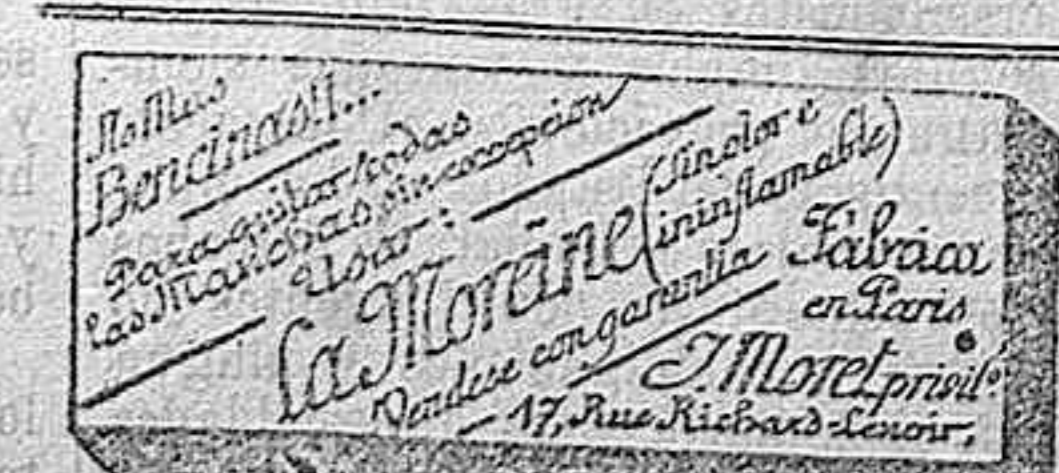 No Mas
Bencinas!!...
Para quitar todas
las Manchas sin excepcion
Usar:
La Moreïne (Sin olor é
ininflamable)
Vendese con garantia
Fábrica
en Paris
J. Moret privil.º
17, Rue Richard-Lenoir,